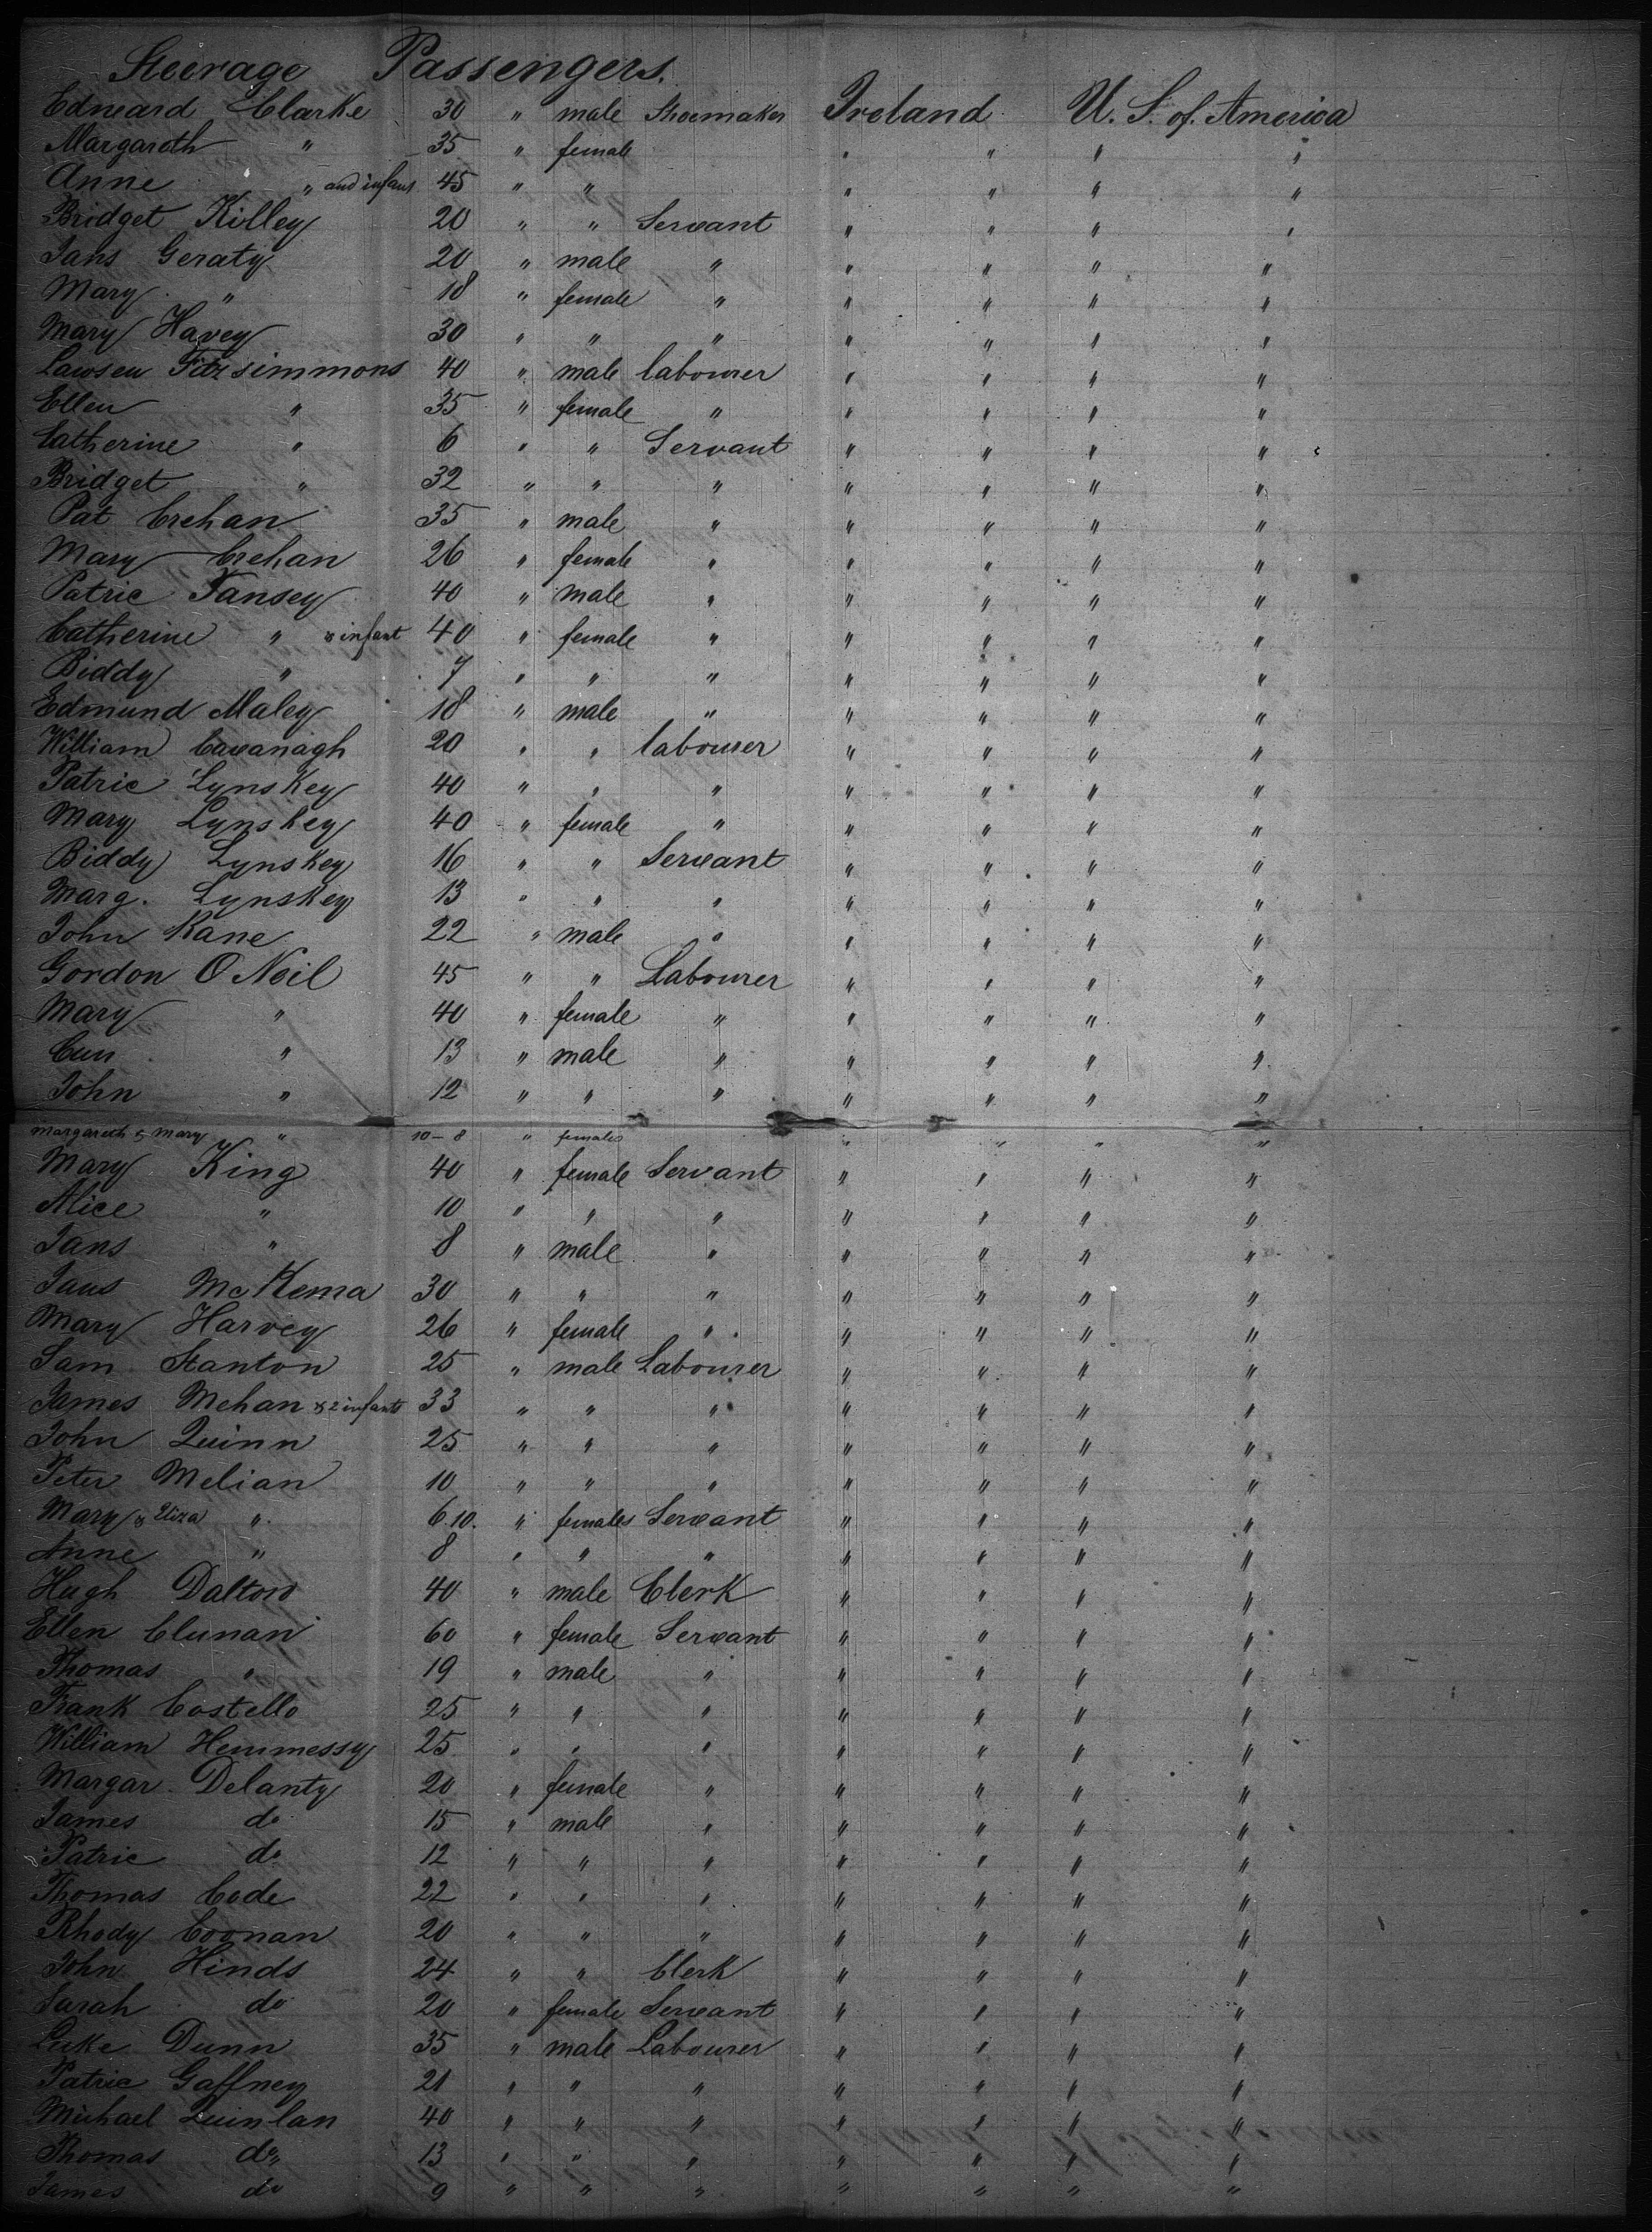 Steerage Passengers.
Edneard Clarke 30 " male Shoemaker Ireland U. S. of America
Margareth " 35 " female " " " "
Anne " and infant 45 " " " " " "
Bridget Killey 20 " " Servant " " " "
Jans Geraty 20 " male " " " " "
Mary " 18 " female " " " " "
Mary Havey 30 " " " " " " "
Lawsen Fitzsimmons 40 " male labourer " " " "
Ellen " 35 " female " " " " "
Catherine " 6 " " Servant " " " "
Bridget " 32 " " " " " " "
Pat Crehan 35 " male " " " " "
Mary Crehan 26 " female " " " " "
Patric Fansey 40 " male " " " " "
Catherine " & infant 40 " female " " " " "
Biddy " 7 " " " " " " "
Edmund Maley 18 " male " " " " "
William Cavanagh 20 " " labourer " " " "
Patric Lynskey 40 " " " " " " "
Mary Lynskey 40 " female " " " " "
Biddy Lynskey 16 " " Servant " " " "
Marg. Lynskey 13 " " " " " " "
John Kane 22 " male " " " " "
Gordon O Neil 45 " " Labourer " " " "
Mary " 40 " female " " " " "
Cun " 13 " male " " " " "
John " 12 " " " " " " "
Margareth & Mary " 10-8 " females " " " "
Mary King 40 " female Servant " " " "
Alice " 10 " " " " " " "
Jans " 8 " male " " " " "
Jans McKema 30 " " " " " " "
Mary Harvey 26 " female " " " " "
Sam Stanton 25 " male Labourer " " " "
James Mehan & 2 infants 33 " " " " " " "
John Quinn 25 " " " " " " "
Peter Melian 10 " " " " " " "
Mary & Eliza " 6.10. " females Servant " " " "
Anne " 8 " " " " " " "
Hugh Dalton 40 " male Clerk " " " "
Ellen Clunan 60 " female Servant " " " "
Thomas " 19 " male " " " " "
Frank Costello 25 " " " " " " "
William Hemmessy 25 " " " " " " "
Margar Delanty 20 " female " " " " "
James do 15 " male " " " " "
Patric do 12 " " " " " " "
Thomas Code 22 " " " " " " "
Rhody Coonan 20 " " " " " " "
John Hinds 24 " " Clerk " " " "
Sarah do 20 " female Servant " " " "
Luke Dunn 35 " male Labourer " " " "
Patric Gaffney 21 " " " " " " "
Michael Quinlan 40 " " " " " " "
Thomas do 13 " " " " " " "
James do 9 " " " " " " "